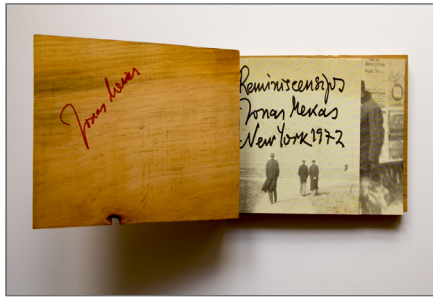 Jonas Mekas
Reminiscensijos
Jonas Mekas
New York 1972